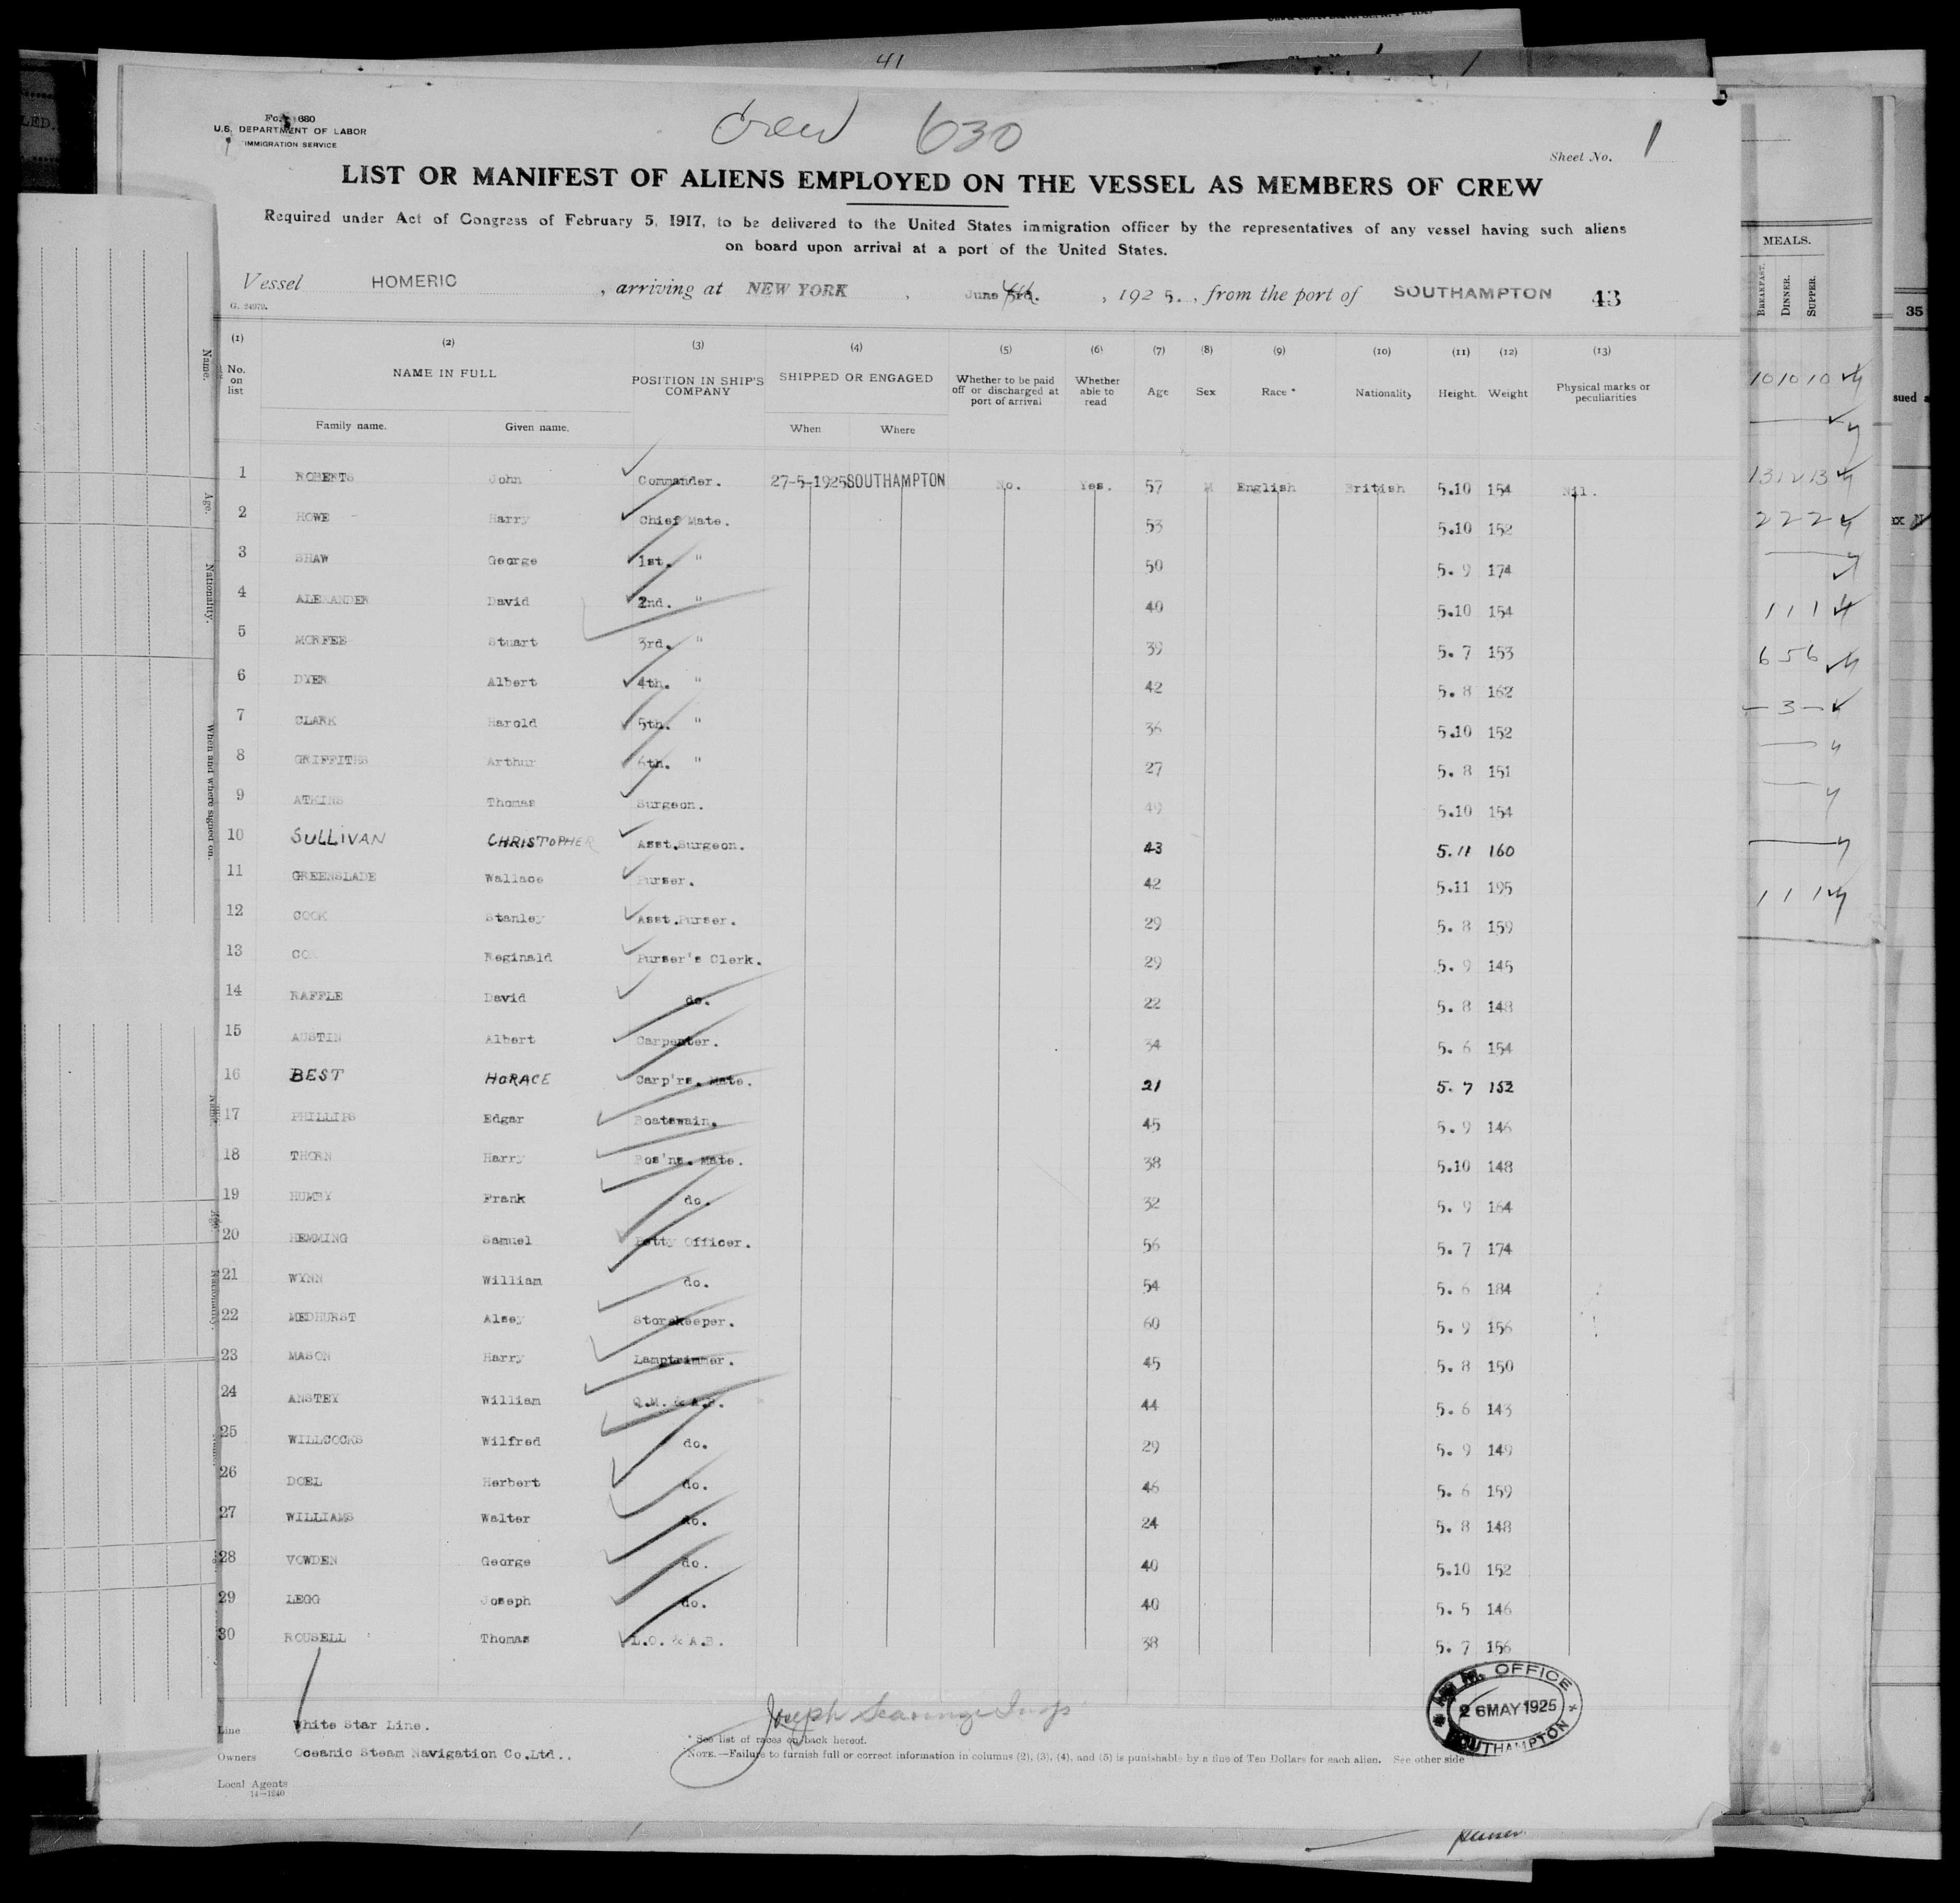 41
Crew 630
680
U.S. DEPARTMENT OF LABOR
IMMIGRATION SERVICE
Sheet No. 1
LIST OR MANIFEST OF ALIENS EMPLOYED ON THE VESSEL AS MEMBERS OF CREW
Required under Act of Congress of February 5, 1917, to be delivered to the United States immigration officer by the representatives of any vessel having such aliens
on board upon arrival at a port of the United States.
Vessel HOMERIC , arriving at NEW YORK , June 4th , 1925. , from the port of SOUTHAMPTON 43
(1) (2) (3) (4) (5) (6) (7) (8) (9) (10) (11) (12) (13)
No. on list NAME IN FULL POSITION IN SHIP'S COMPANY SHIPPED OR ENGAGED Whether to be paid off or discharged at port of arrival Whether able to read Age Sex Race * Nationality Height. Weight Physical marks or peculiarities
Family name. Given name. When Where
1 ROBERTS John Commander. 27-5-1925 SOUTHAMPTON No. Yes. 57 M English British 5.10 154 Nil.
2 HOWE Harry Chief Mate. 53 5.10 152
3 SHAW George 1st. " 50 5. 9 174
4 ALEXANDER David 2nd. " 40 5.10 154
5 MORFEE Stuart 3rd. " 39 5. 7 153
6 DYER Albert 4th. " 42 5. 8 162
7 CLARK Harold 5th. " 36 5.10 152
8 GRIFFITHS Arthur 6th. " 27 5. 8 151
9 ATKINS Thomas Surgeon. 49 5.10 154
10 SULLIVAN CHRISTOPHER Asst.Surgeon. 43 5.11 160
11 GREENSLADE Wallace Purser. 42 5.11 195
12 COOK Stanley Asst.Purser. 29 5. 8 159
13 Reginald Purser's Clerk. 29 5. 9 145
14 RAFFLE David do. 22 5. 8 148
15 AUSTIN Albert Carpenter. 34 5. 6 154
16 BEST HORACE Carp'rs. Mate. 21 5. 7 152
17 PHILLIPS Edgar Boatswain. 45 5. 9 146
18 THORN Harry Bos'ns. Mate. 38 5.10 148
19 HUMBY Frank do. 32 5. 9 164
20 HEMMING Samuel Petty Officer. 56 5. 7 174
21 WYNN William do. 54 5. 6 184
22 MEDHURST Alsey Storekeeper. 60 5. 9 156
23 MASON Harry Lamptrimmer. 45 5. 8 150
24 ANSTEY William Q.M. & A.B. 44 5. 6 143
25 WILLCOCKS Wilfred do. 29 5. 9 149
26 DOEL Herbert do. 46 5. 6 159
27 WILLIAMS Walter do. 24 5. 8 148
28 VOWDEN George do. 40 5.10 152
29 LEGG Joseph do. 40 5. 5 146
30 ROUSELL Thomas L.O. & A.B. 38 5. 7 156
Line White Star Line.
Owners Oceanic Steam Navigation Co.Ltd..
Local Agents
14—1240
Joseph
* See list of races on back hereof.
NOTE.—Failure to furnish full or correct information in columns (2), (3), (4), and (5) is punishable by a fine of Ten Dollars for each alien. See other side
M. OFFICE
26 MAY 1925
SOUTHAMPTON
MEALS.
BREAKFAST. DINNER. SUPPER.
10 10 10
13 12 13
2 2 2
1 1 1
6 5 6
3
1 1 1
35
sued
Name.
Age.
Nationality.
When and where signed on.
Name.
Age.
Nationality.